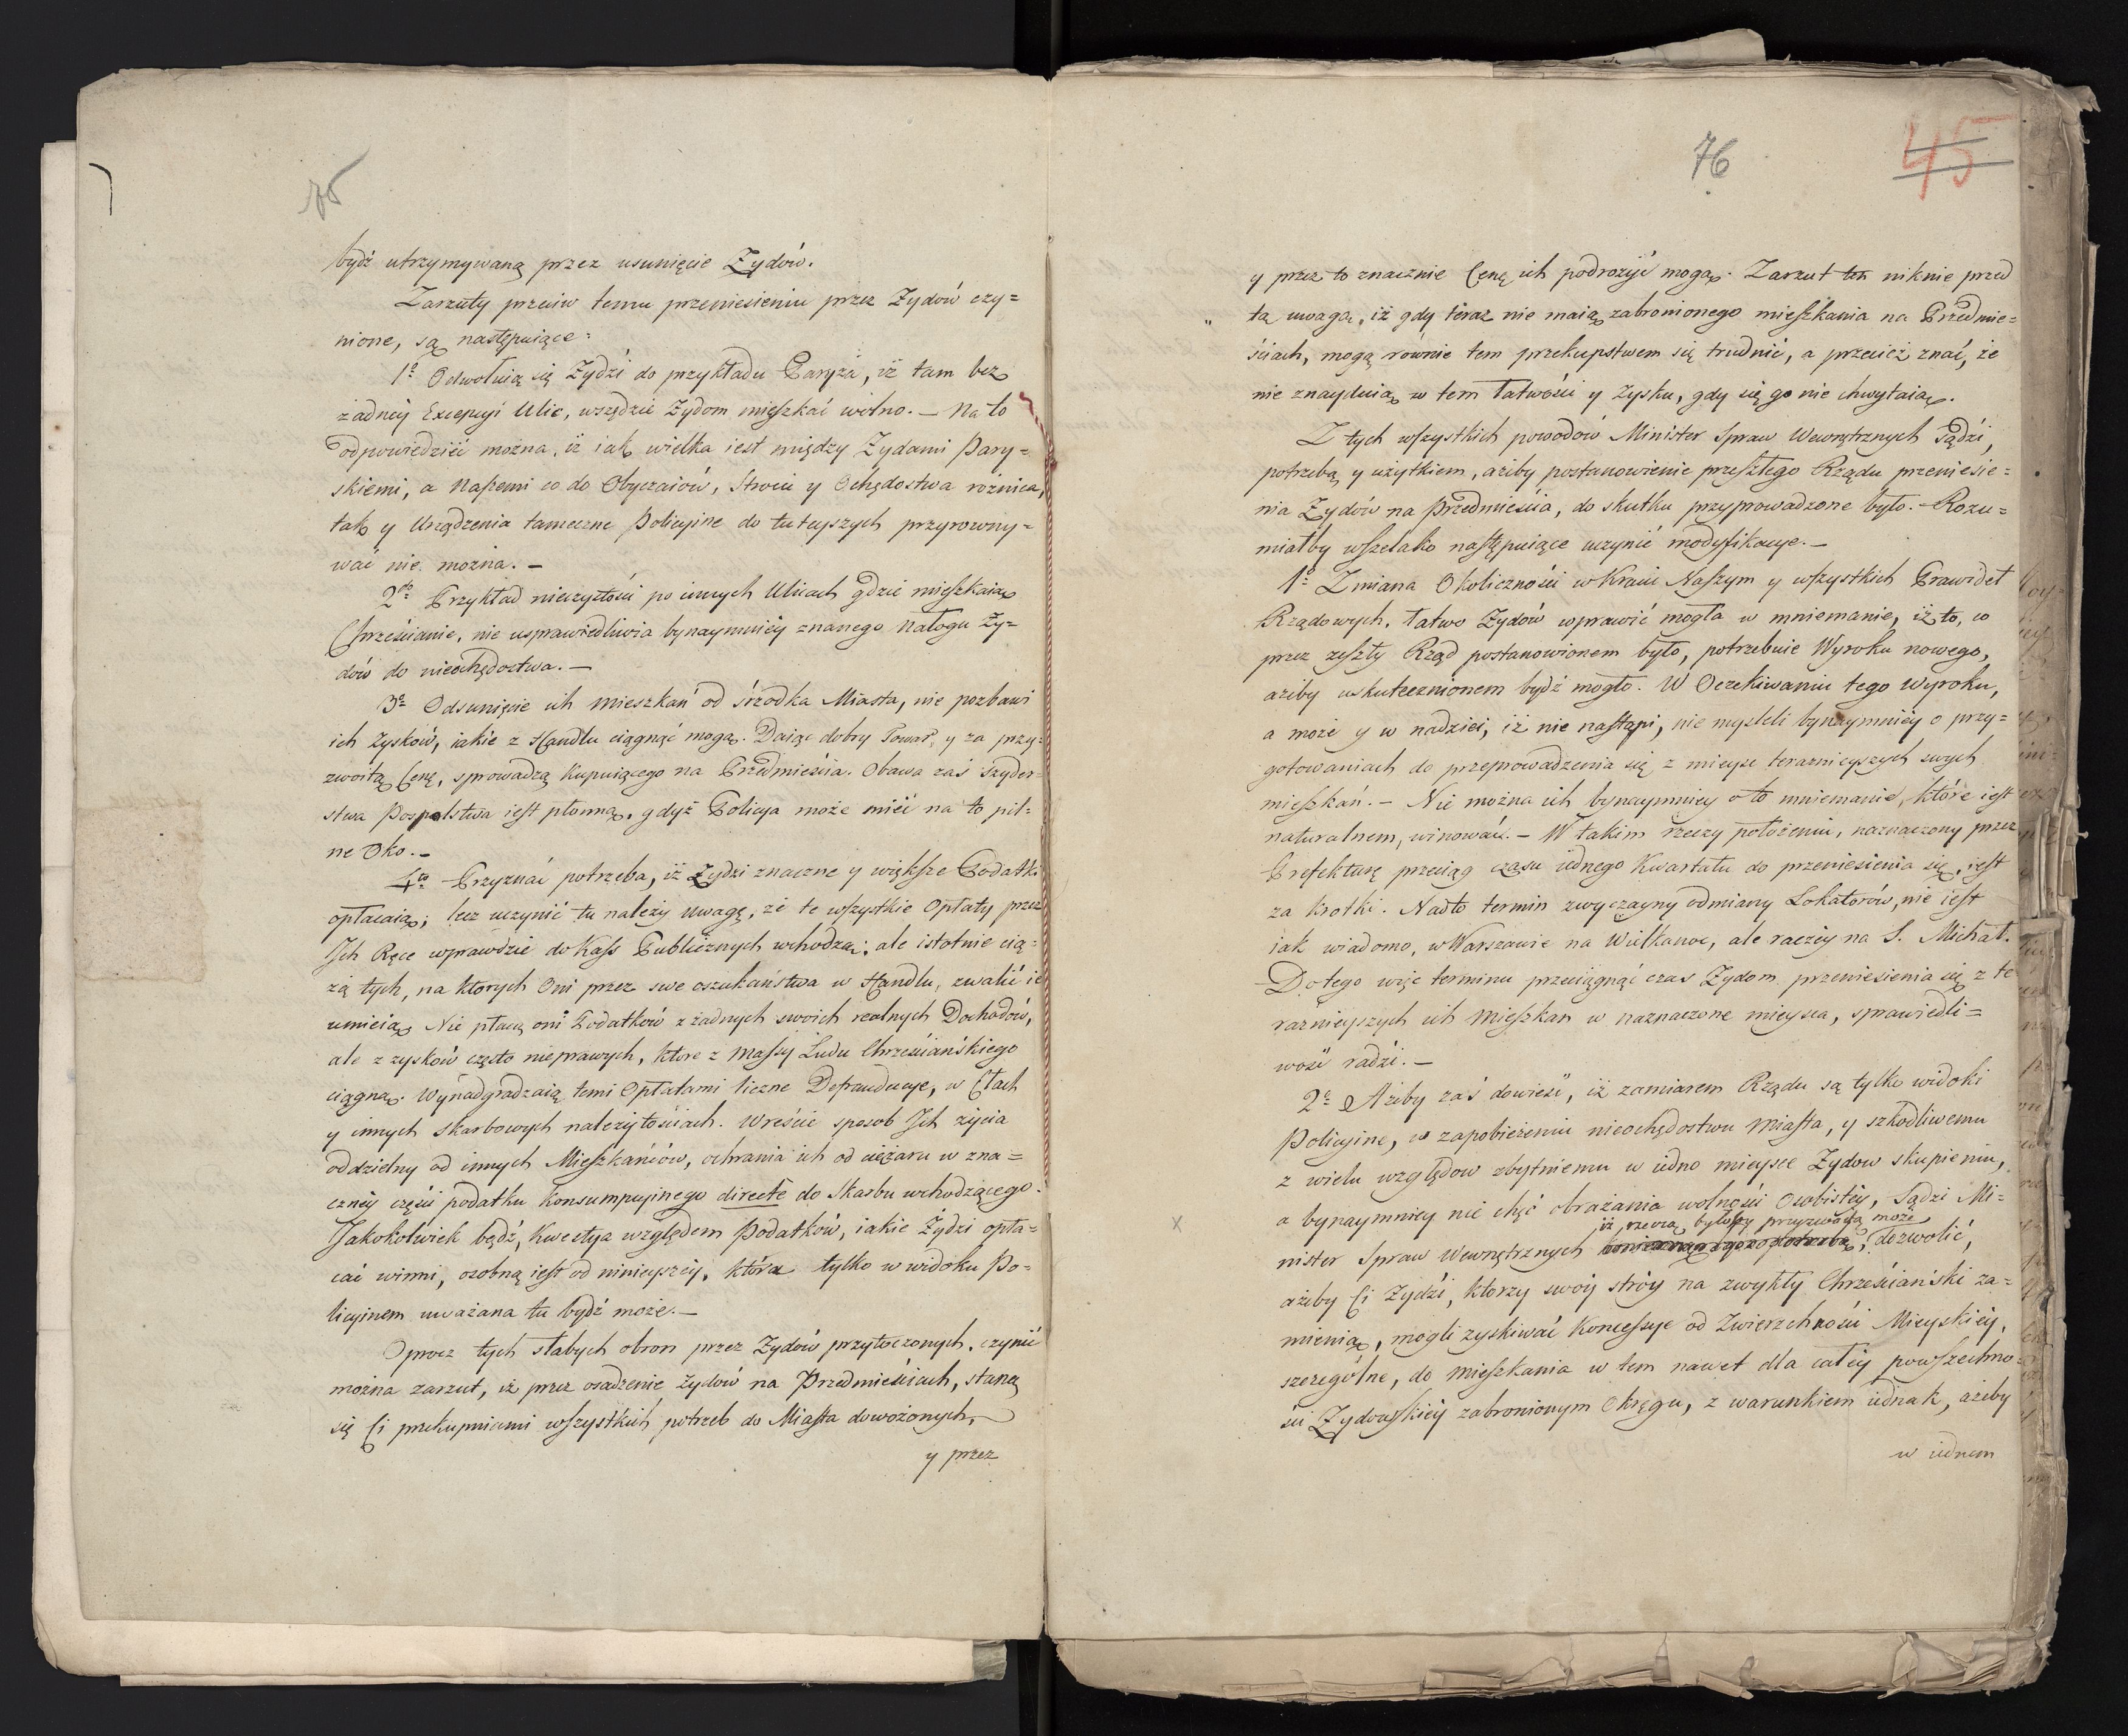 75
bydź utrzymywaną przez usunięcie Żydów.
Zarzuty przeciw temu przeniesieniu przez Żydów czy=
nione, są następuiące:
1º Odwołuią się Żydzi do przykładu Paryża, iż tam bez
żadney Excepcyi Ulic, wszędzie Żydom mieszkać wolno. — Na to
odpowiedzieć można, iż iak wielka iest między Żydami Pary=
skiemi, a Naszemi co do Obyczaiów, Stroiu y Ochędostwa roznica,
tak y Urządzenia tameczne Policyine do tuteyszych przyrowny=
wać nie można. —
2do Przykład nieczystości po innych Ulicach gdzie mieszkaią
Chrześcianie, nie usprawiedliwia bynaymniéy znanego Nałogu Ży=
dów do nieochędostwa. —
3º Odsunięcie ich mieszkań od śrzodka Miasta, nie pozbawi
ich zysków, iakie z Handlu ciągnąć mogą. Daiąc dobry Towar, y za przy=
zwoitą Cenę, sprowadzą Kupuiącego na Przedmieścia. Obawa zaś Szyder=
stwa Pospolstwa iest płonną, gdyż Policya może mieć na to pil=
ne Oko. —
4to Przyznać potrzeba, iż Żydzi znaczne y większe Podatki
opłacaią; lecz uczynić tu należy uwagę, że te wszystkie Opłaty przez
Ich Ręce wprawdzie do Kass Publicznych wchodzą; ale istotnie cią=
żą tych, na ktorych Oni przez swe oszukaństwa w Handlu, zwalić ie
umieią. Nie płacą oni Podatków z żadnych swoich realnych Dochodów,
ale z zysków często nieprawych, ktore z Massy Ludu Chrześciańskiego
ciągną. Wynadgradzaią temi Opłatami liczne Defraudacye, w Cłach
y innych skarbowych należytościach. Wreście sposob Ich życia
oddzielny od innych Mieszkańców, ochrania ich od ciężaru w zna=
czney części podatku konsumpcyinego directe do Skarbu wchodzącego.
Jakokolwiek bądź, Kwestya względem Podatków, iakie Żydzi opła=
cać winni, osobną iest od ninieyszéy, która tylko w widoku Po=
licyinem uważana tu bydź może. —
Oprocz tych słabych obron przez Żydów przytoczonych, czynić
można zarzut, iż przez osadzenie Żydów na Przedmieściach, staną
się Ci przekupniami wszystkich potrzeb do Miasta dowożonych,
y przez
76
45
y przez to znacznie Cenę ich podrożyć mogą. Zarzut ten niknie przed
tą uwagą, iż gdy teraz nie maią zabronionego mieszkania na Przedmie=
ściach, mogą równie tem przekupstwem się trudnić, a przecież znać, że
nie znayduią w tem łatwości y zysku, gdy się go nie chwytaią.
Z tych wszystkich powodów Minister Spraw Wewnętrznych sądzi,
potrzebą y użytkiem, ażeby postanowienie przeszłego Rządu przeniesie=
nia Żydów na Przedmieścia, do skutku przyprowadzone było. — Rozu=
miałby wszelako następuiące uczynić modyfikacye. —
1º Zmiana Okoliczności w Kraiu Naszym y wszystkich Prawideł
Rządowych, łatwo Żydów wprawić mogła w mniemanie, iż to, co
przez zeszły Rząd postanowionem było, potrzebuie Wyroku nowego,
ażeby uskutecznionem bydź mogło. W Oczekiwaniu tego wyroku,
a może y w nadziei, iż nie nastąpi, nie mysleli bynaymniéy o przy=
gotowaniach do przeprowadzenia się z mieysc teraznieyszych swych
mieszkań. — Nie można ich bynaymniey o to mniemanie, które iest
naturalnem, winować. — W takim rzeczy położeniu, naznaczony przez
Prefekturę przeciąg czasu iednego Kwartału do przeniesienia się, iest
za krotki. Nadto termin zwyczayny odmiany Lokatorów, nie iest
iak wiadomo, w Warszawie na Wielkanoc, ale raczéy na S. Michał.
Do tego więc terminu przeciągnąć czas Żydom przeniesienia się z te
raznieyszych ich Mieszkan w naznaczone mieysca, sprawiedli=
wość radzi. —
2º Ażeby zaś dowieść, iż zamiarem Rządu są tylko widoki
Policyine, w zapobieżeniu nieochędostwu Miasta, y szkodliwemu
z wielu względow zbytniemu w iedno mieysce Żydow skupieniu,
a bynaymniey nie chęć obrażania wolności Osobistéy, Sądzi Mi=
iż rzeczą byłoby przyzwoitą może
nister Spraw Wewnętrznych dozwolić,
ażeby Ci Żydzi, ktorzy swóy stróy na zwykły Chrześciański za=
mienią, mogli zyskiwać Koncessye od Zwierzchności Mieyskiéy,
szczególne, do mieszkania w tem nawet dla całéy powszechno=
ści Żydowskiéy zabronionym Okręgu, z warunkiem iednak, ażeby
w iednem